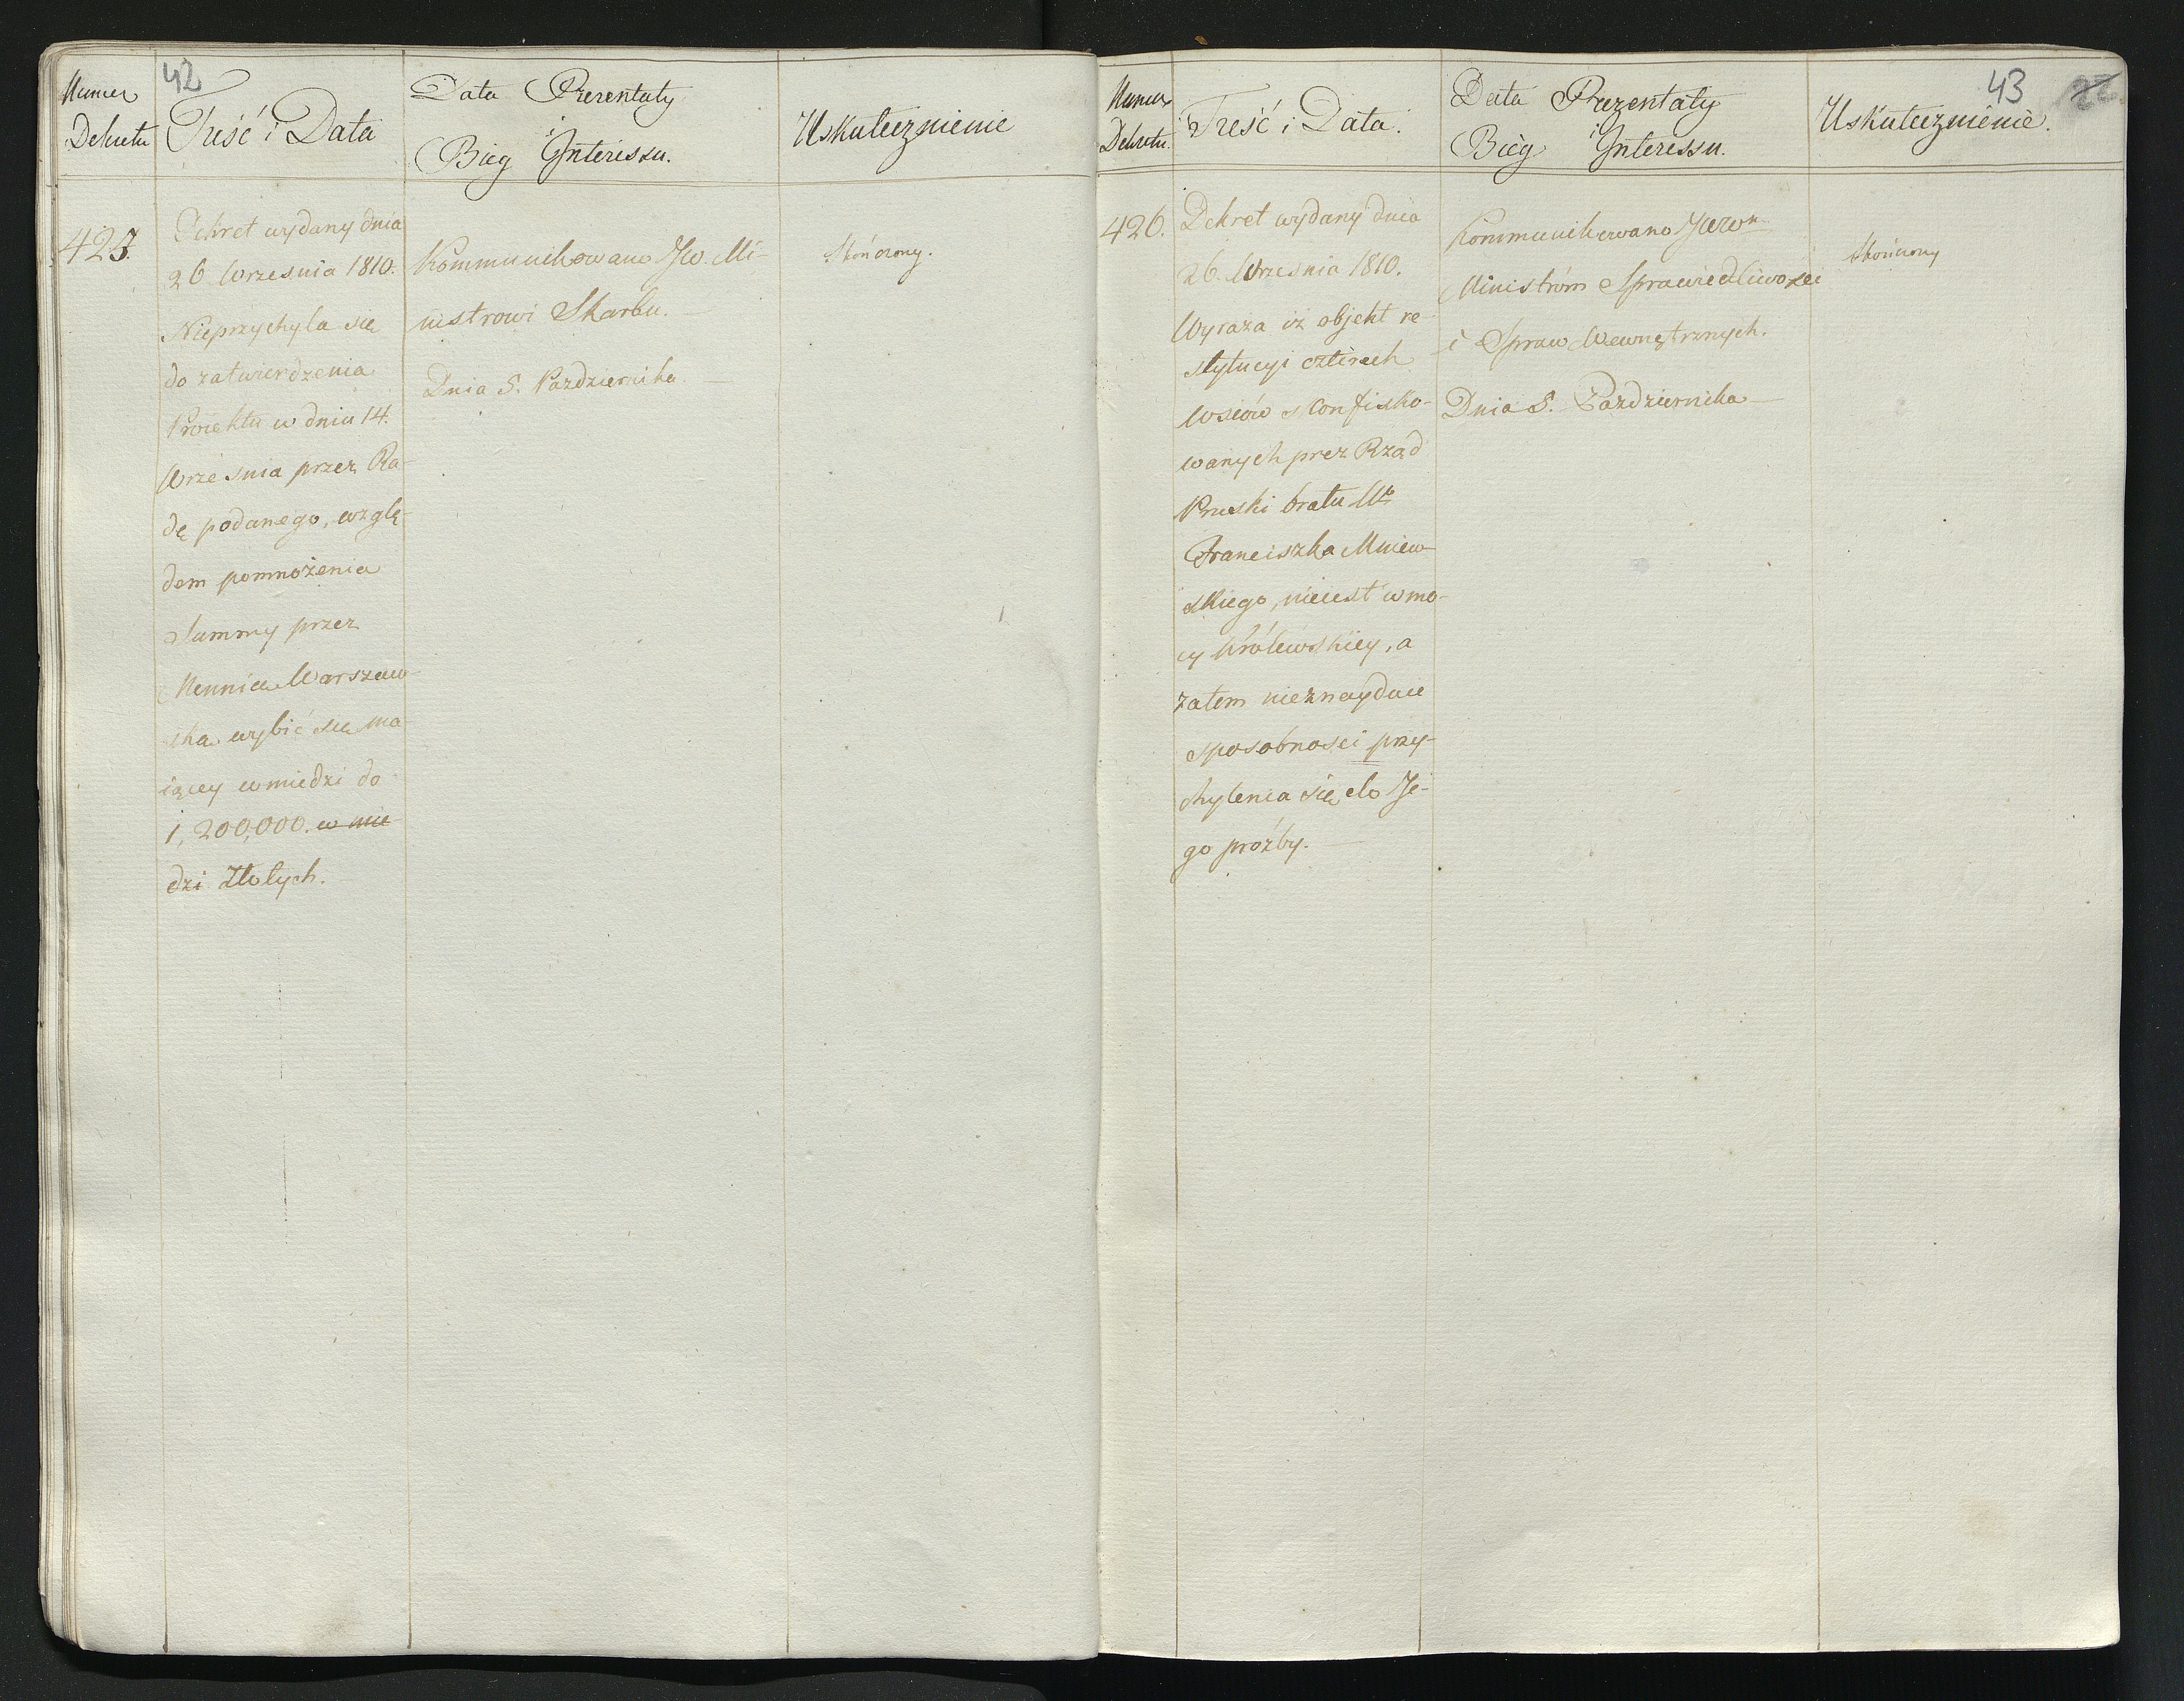 42
Numer
Dekretu
Treść i Data
Data Prezentaty
i
Bieg Interessu.
Uskutecznienie
425.
Dekret wydany dnia
26 Wrzesnia 1810.
Nieprzychyla się
do zatwierdzenia
Proiektu w dniu 14.
Wrzesnia przez Ra-
dę podanego, wzglę-
dem pomnożenia
Summy przez
Mennicę Warszaw-
ską wybić się ma
iącey w miedzi do
1,200,000. w mie
dzi Złotych.
Kommunikowano JW. Mi-
nistrowi Skarbu. —
Dnia 5. Pazdziernika —
Skończony.
43
22
Numer
Dekretu.
Treść i Data.
Data Prezentaty
i
Bieg Interessu.
Uskutecznienie.
426.
Dekret wydany dnia
26. Wrzesnia 1810.
Wyraza iż objekt re-
stytucyi czterech
Wsiów skonfisko-
wanych prez Rząd
Pruski bratu Ur
Franciszka Mniew-
skiego, nieiest w mo-
cy Królewskiey, a
zatem nieznayduie
sposobnosci przy-
chylenia się do Je-
go proźby. —
Kommunikowano JWWm
Ministróm Sprawiedliwości
i Spraw Wewnętrznych.
Dnia 5. Pazdziernika —
Skończony